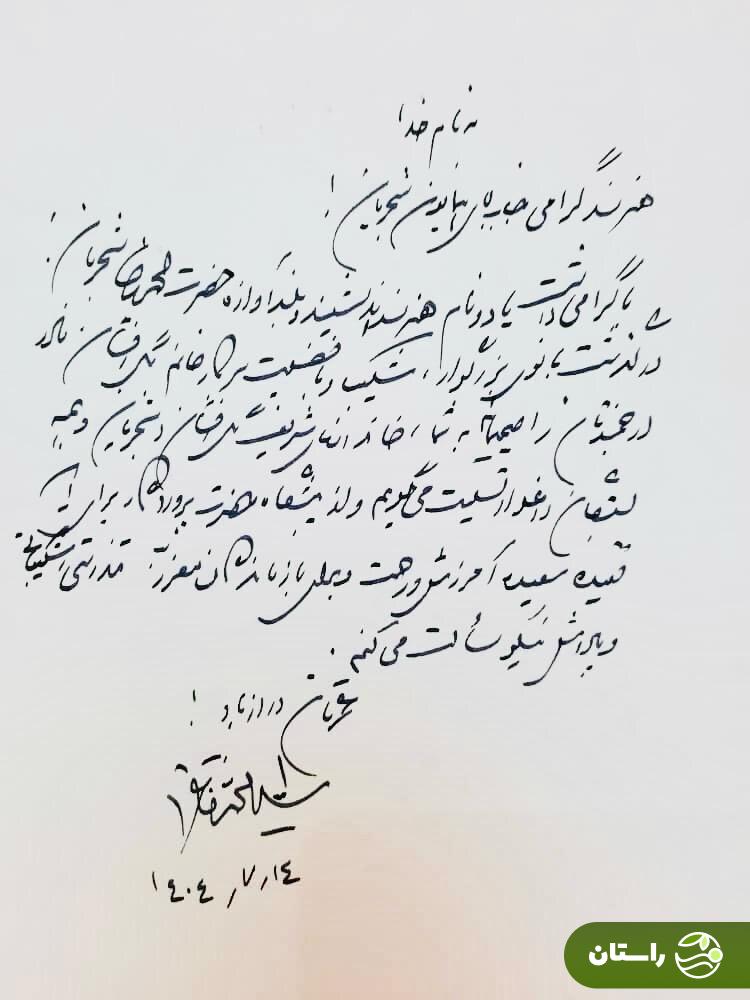 به نام خدا
هنرمند گرامی جناب آقای همایون شجریان!
با گرامی‌داشت یاد و نام هنرمند اندیشمند و بلندآوازه حضرت محمدرضا شجریان؛
درگذشت بانوی بزرگوار، شکیبا و با فضیلت سرکار خانم گل‌افشان مادر
ارجمندتان را صمیمانه به شما، خاندان شریف گل‌افشان و شجریان و همهٔ
داغدار تسلیت می‌گویم و از پیشگاه حضرت پروردگار برای آن
فقیده سعیده آمرزش و رحمت و برای بازماندگان معزز تندرستی، شکیبایی
و پاداش نیکو مسألت می‌کنم.
عمرتان دراز باد!
سید محمد خاتمی
۱۴۰۴/۷/۱۴
راستان